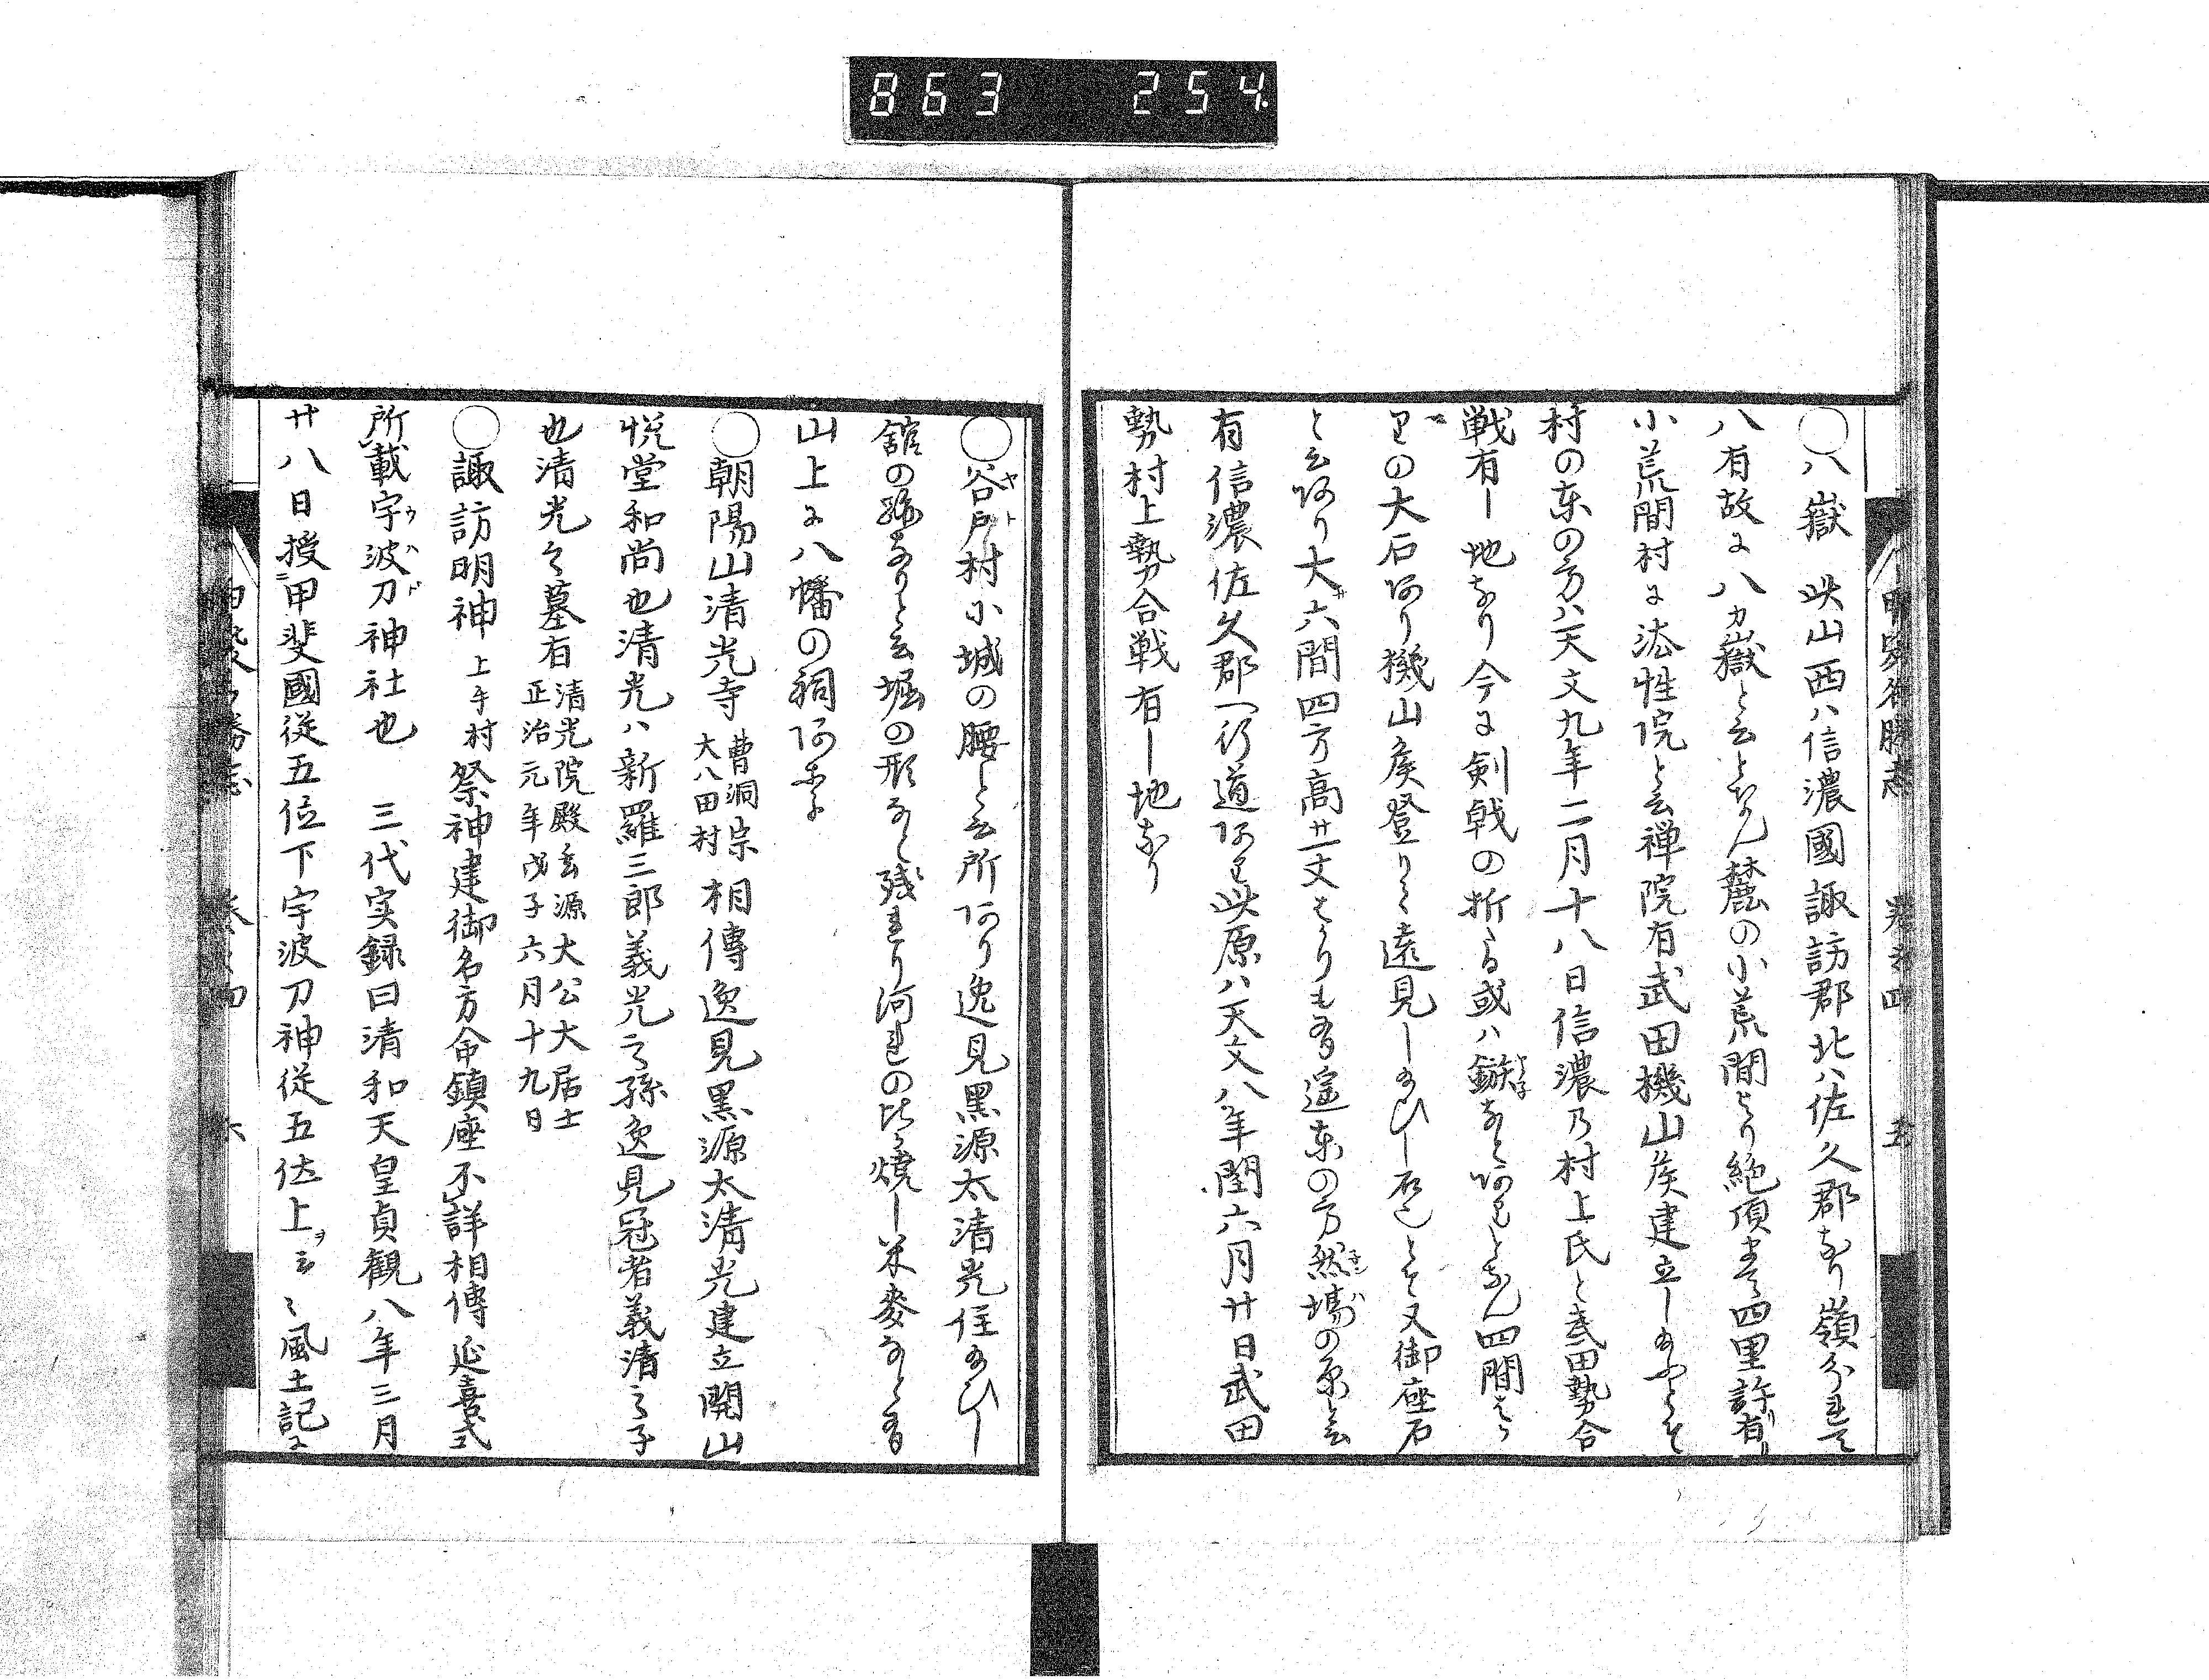 863 254
甲斐名勝志 巻之四 五
○八嶽 此山西ハ信濃國諏訪郡北ハ佐久郡なり嶺分れて
八有故に八ヵ嶽と云となん麓の小荒間より絶頂まて四里許有り
小荒間村に法性院と云禅院有武田機山侯建立し給ふとそ
村の東の方ハ天文九年二月十八日信濃乃村上氏と武田勢合
戦有し地なり今に剣戟の折たる或ハ鏃なとありとなん四間はか
りの大石あり機山侯登りて遠見し給ひし石也とそ又御座石
と云あり大サ六間四方高廿一丈はかりも有逕東の方念場の原と云
有信濃佐久郡へ行道あり此原ハ天文八年閏六月廿日武田
勢村上勢合戦有し地なり
○谷戸村小城の腰と云所あり逸見黒源太清光住給ひし
舘の跡なりと云堀の形なと残れり河岸の比焼し米麥なと有
山上に八幡の祠あり
○朝陽山清光寺 曹洞宗 大八田村 相傳逸見黒源太清光建立開山
悦堂和尚也清光ハ新羅三郎義光之孫逸見冠者義清之子
也清光之墓有 清光院殿玄源大公大居士 正治元年戊子六月十九日
○諏訪明神 上手村 祭神建御名方命鎮座不詳相傳延喜式
所載宇波刀神社也 三代実録曰清和天皇貞観八年三月
廿八日授甲斐國従五位下宇波刀神従五位上ヲ云々風土記に
甲斐名勝志 巻之四 六